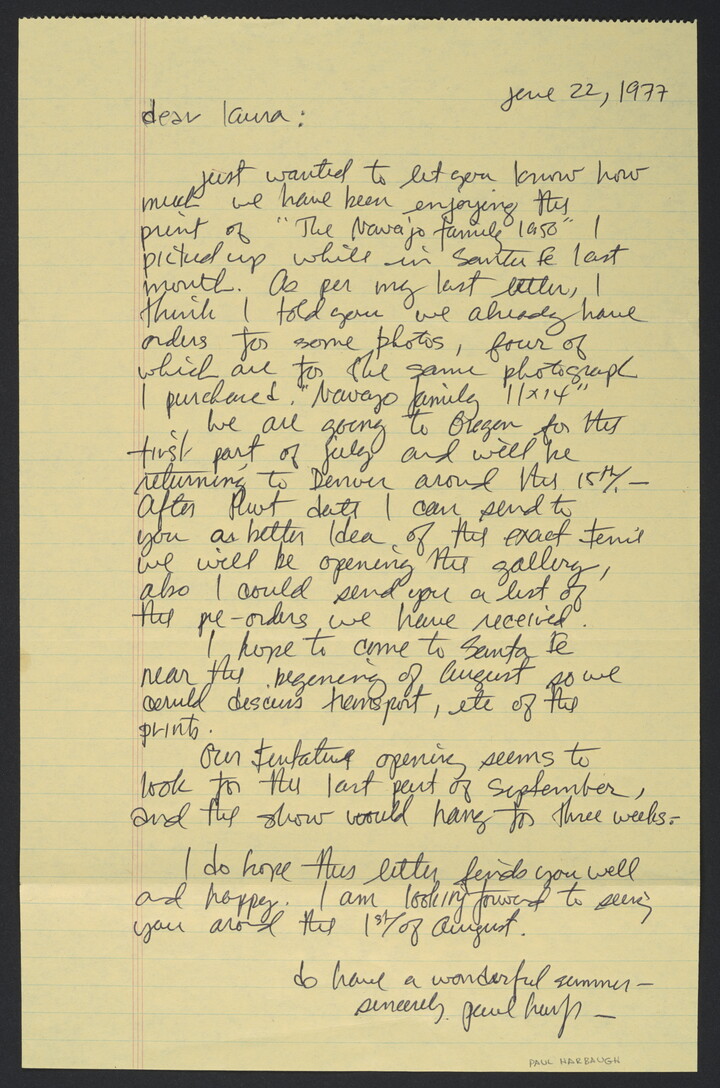 june 22, 1977
dear laura:
just wanted to let you know how
much we have been enjoying the
print of "The Navajo family 1950" I
picked up while in Santa Fe last
month. As per my last letter, I
think I told you we already have
orders for some photos, four of
which are for the same photograph
I purchased. "Navajo family 11x14"
We are going to Oregon for the
first part of july and will be
returning to Denver around the 15th. —
After that date I can send to
you a better Idea of the exact time
we will be opening the gallery,
also I could send you a list of
the pre-orders we have received.
I hope to come to Santa Fe
near the begening of August so we
could discuss transport, etc of the
prints.
Our tentative opening seems to
look for the last part of September,
and the show would hang for three weeks-
I do hope this letter finds you well
and happy. I am looking forward to seeing
you around the 1st of August.
do have a wonderful summer —
sincerely paul —
PAUL HARBAUGH